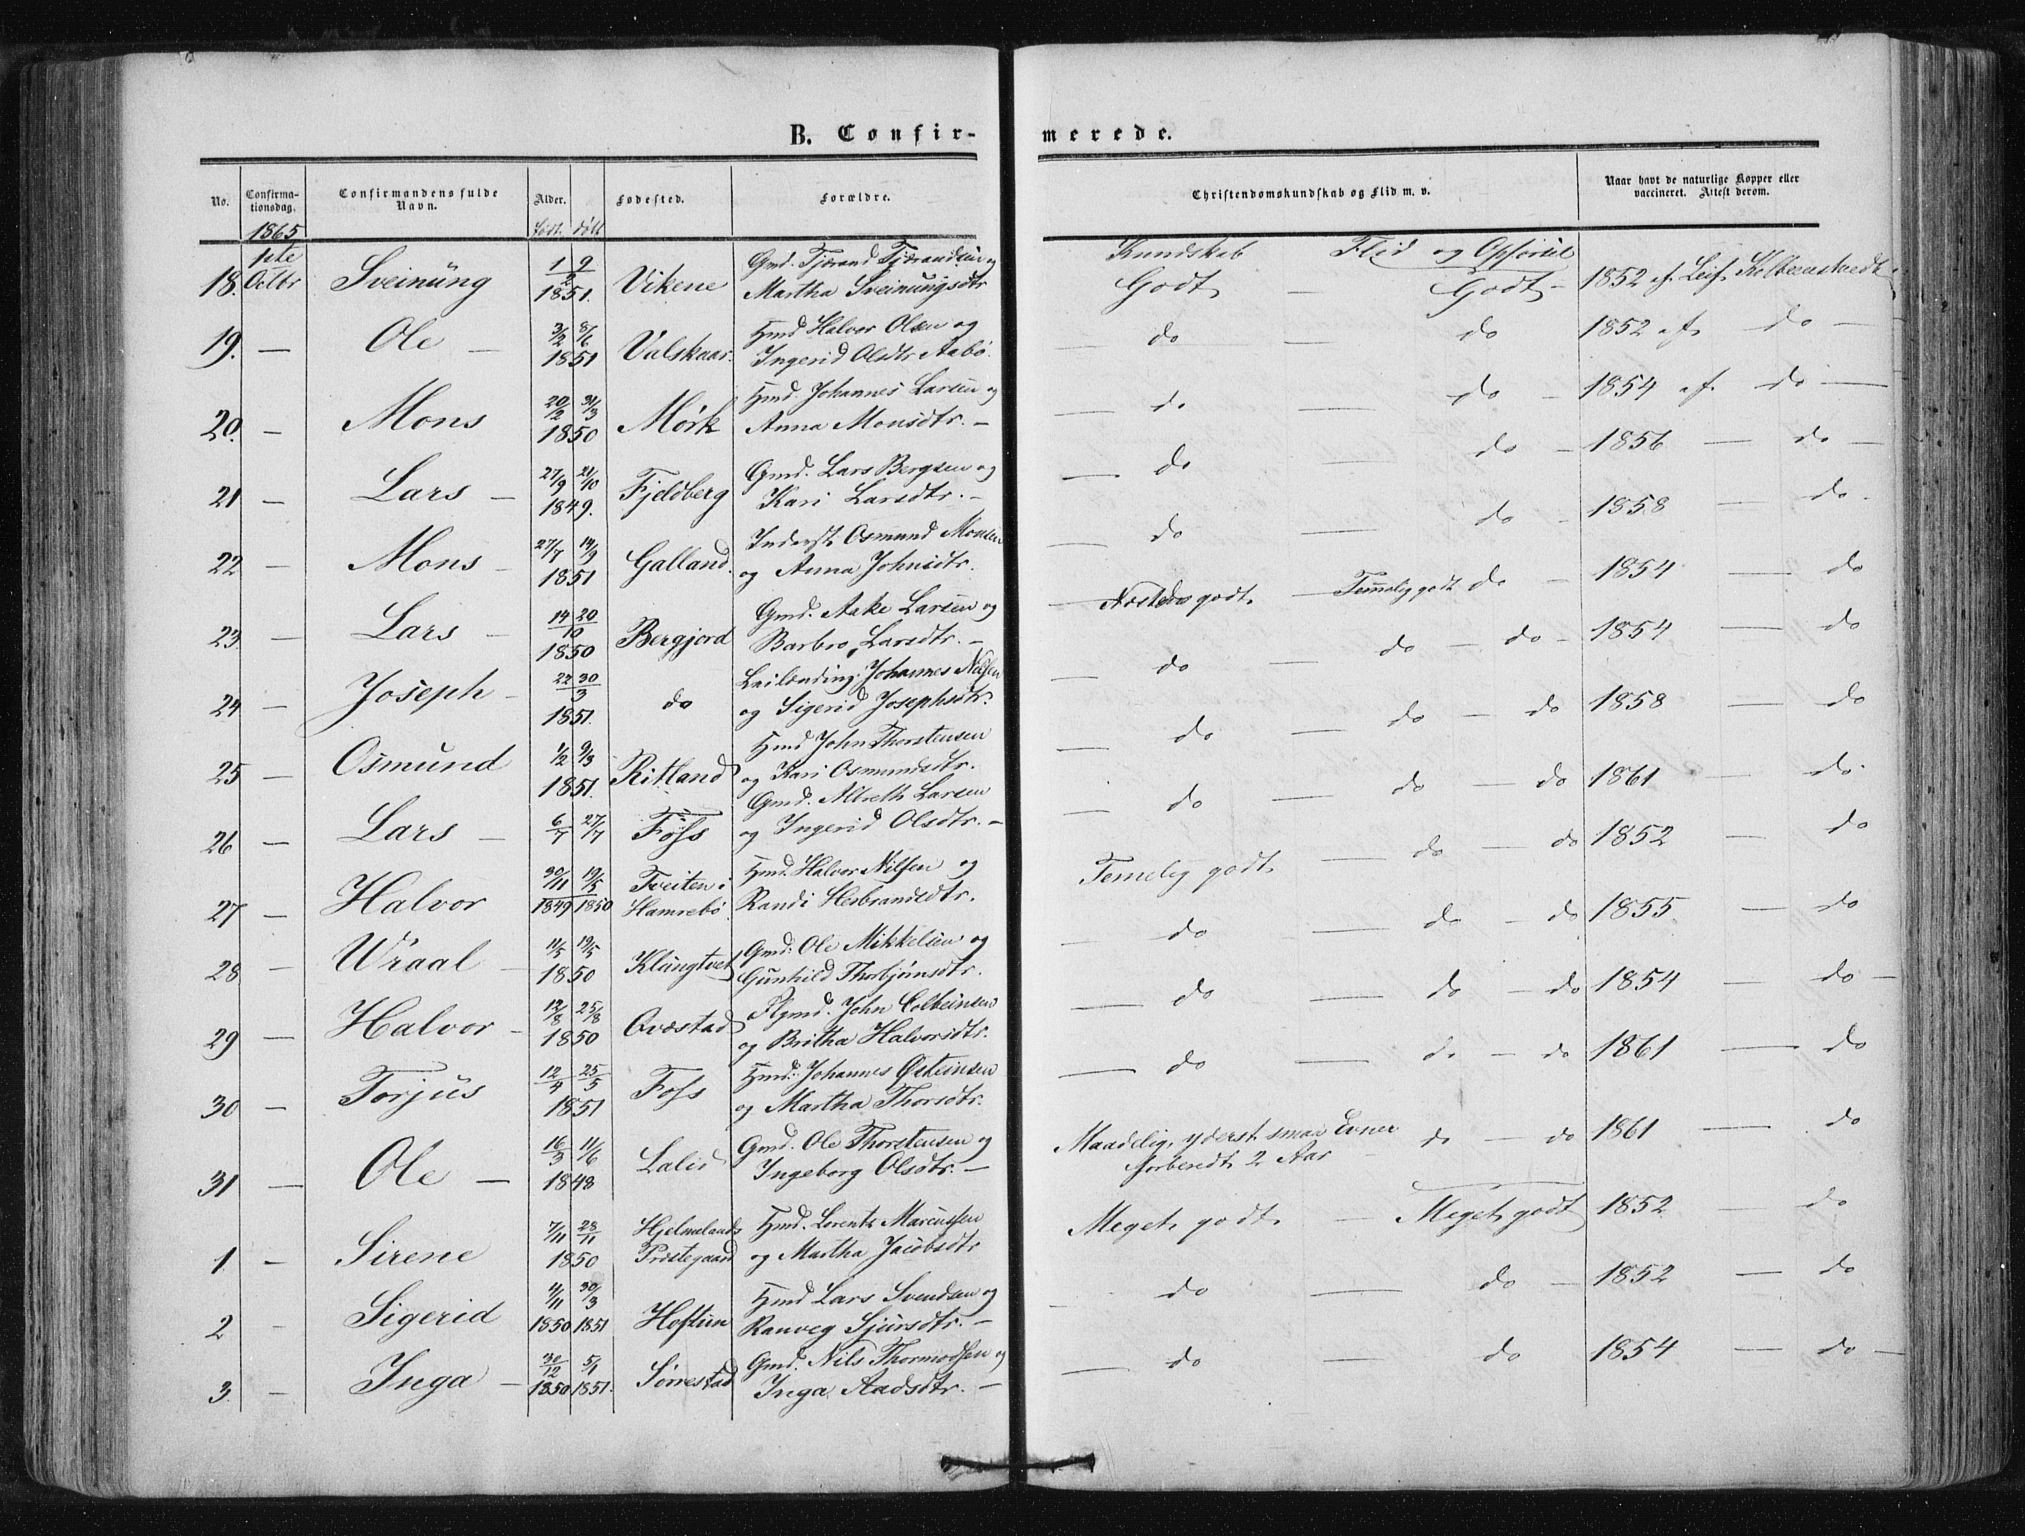 B. Confir-
merede.
No.
Confirma-
tionsdag.
Confirmandens fulde
Navn.
Alder.
Fødested.
Forældre.
Christendomskundskab og Flid m. v.
Naar havt de naturlige Kopper eller
vaccineret. Attest derom.
1865
født. døbt
Kundskab Flid og Opførsel
18. 1ste Octbr Sveinung 1 9 / 2 1851. Vikene Gmd. Tjærand Tjærandsen og
Martha Sveinungsdtr
Godt — Godt — 1852 af Leif Kolbeenstvedt
19. — Ole — 3/2 8/6 1851 Valskaar. Hmd Halvor Olsen og
Ingerid Olsdtr Aabø.
— do — do 1852 af — do —
20. — Mons 20/2 31/3 1850 Mørk Hmd. Johannes Larsen og
Anna Monsdtr. —
— do — do — 1854 af — do —
21 — Lars — 27/9 21/10 1849. Fjeldberg Gmd. Lars Bergsen og
Kari Larsdtr. —
— do — do — 1856 — do —
22 — Mons — 27/7 14/9 1851 Galland. Inderst Osmund Monsen
og Anna Johnsdtr.
— do — do — 1858 — do.
23 — Lars — 14 20 / 10 1850 Bergjord Gmd. Aake Larsen og
Barbro Larsdtr. —
— Næsten godt. — Temelig godt do — 1854 — do
24 — Joseph — 22 30 / 3 1851. do Leilænding Johannes Nilsen
og Sigerid Josephsdtr.
— do — do — do — 1854 — do
25 — Osmund 1/2 9/3 1851. Ritland Hmd John Thorstensen
og Kari Osmundsdtr.
— do — do — do 1858 — do
26 — Lars — 6/7 27/7 Foss Gmd. Albreth Larsen
og Ingerid Olsdtr. —
— do — do — do 1861 — do
27 — Halvor 30/11 19/5 1849 1850 Tveiten i
Hamrebø. Hmd. Halvor Nilsen og
Randi Herbrandsdtr.
Temelig godt. — do — do 1852 — do
28 — Wraal — 11/5 19/5 1850 Klungtvet Gmd. Ole Mikkelsen og
Gunhild Thorbjørnsdtr.
— do — do — do 1855 — do
29 — Halvor — 12/8 25/8 1850 Ovæstad Flgmd. John Colbeinsen
og Britha Halvorsdtr.
— do — do — do 1854 — do —
30 — Torjus 12/4 25/5 1851 Foss Hmd. Johannes Østeinsen
og Martha Thorsdtr.
— do — do — do 1861 — do
31 — Ole — 16/3 11/6 1848 Lalid Gmd. Ole Thorstensen og
Ingeborg Olsdtr. —
Maadelig, yderst smaa Evner do — do 1861 — do
forberedt 2 Aar
1. — Sirene 7/11 28/11 1850 Hjelmelands
Præstegaard Hmd. Lorents Marcussen
og Martha Jacobsdtr
Meget godt. — Meget godt 1852 — do
2 — Sigerid 4/11 30/3 1850 1851 Hoftun Hmd Lars Svendsen og
Ranveg Sjursdtr. —
— do — do — 1852 — do
3. — Inga — 30/12 5/1 1850 1851. Sørrestad Gmd. Nils Thormodsen og
Inga Aadsdtr. —
— do — do 1854 — do —